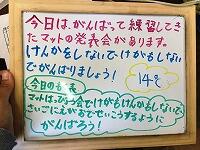 今日は、がんばって練習してき
たマットの発表会があります。
けんかをしないでけがもしない
でがんばりましょう!
14℃
今日のめあて
マットはっぴょう会でけがもけんかもしないで、
さいごにえがおでせいこうするように
がんばろう!